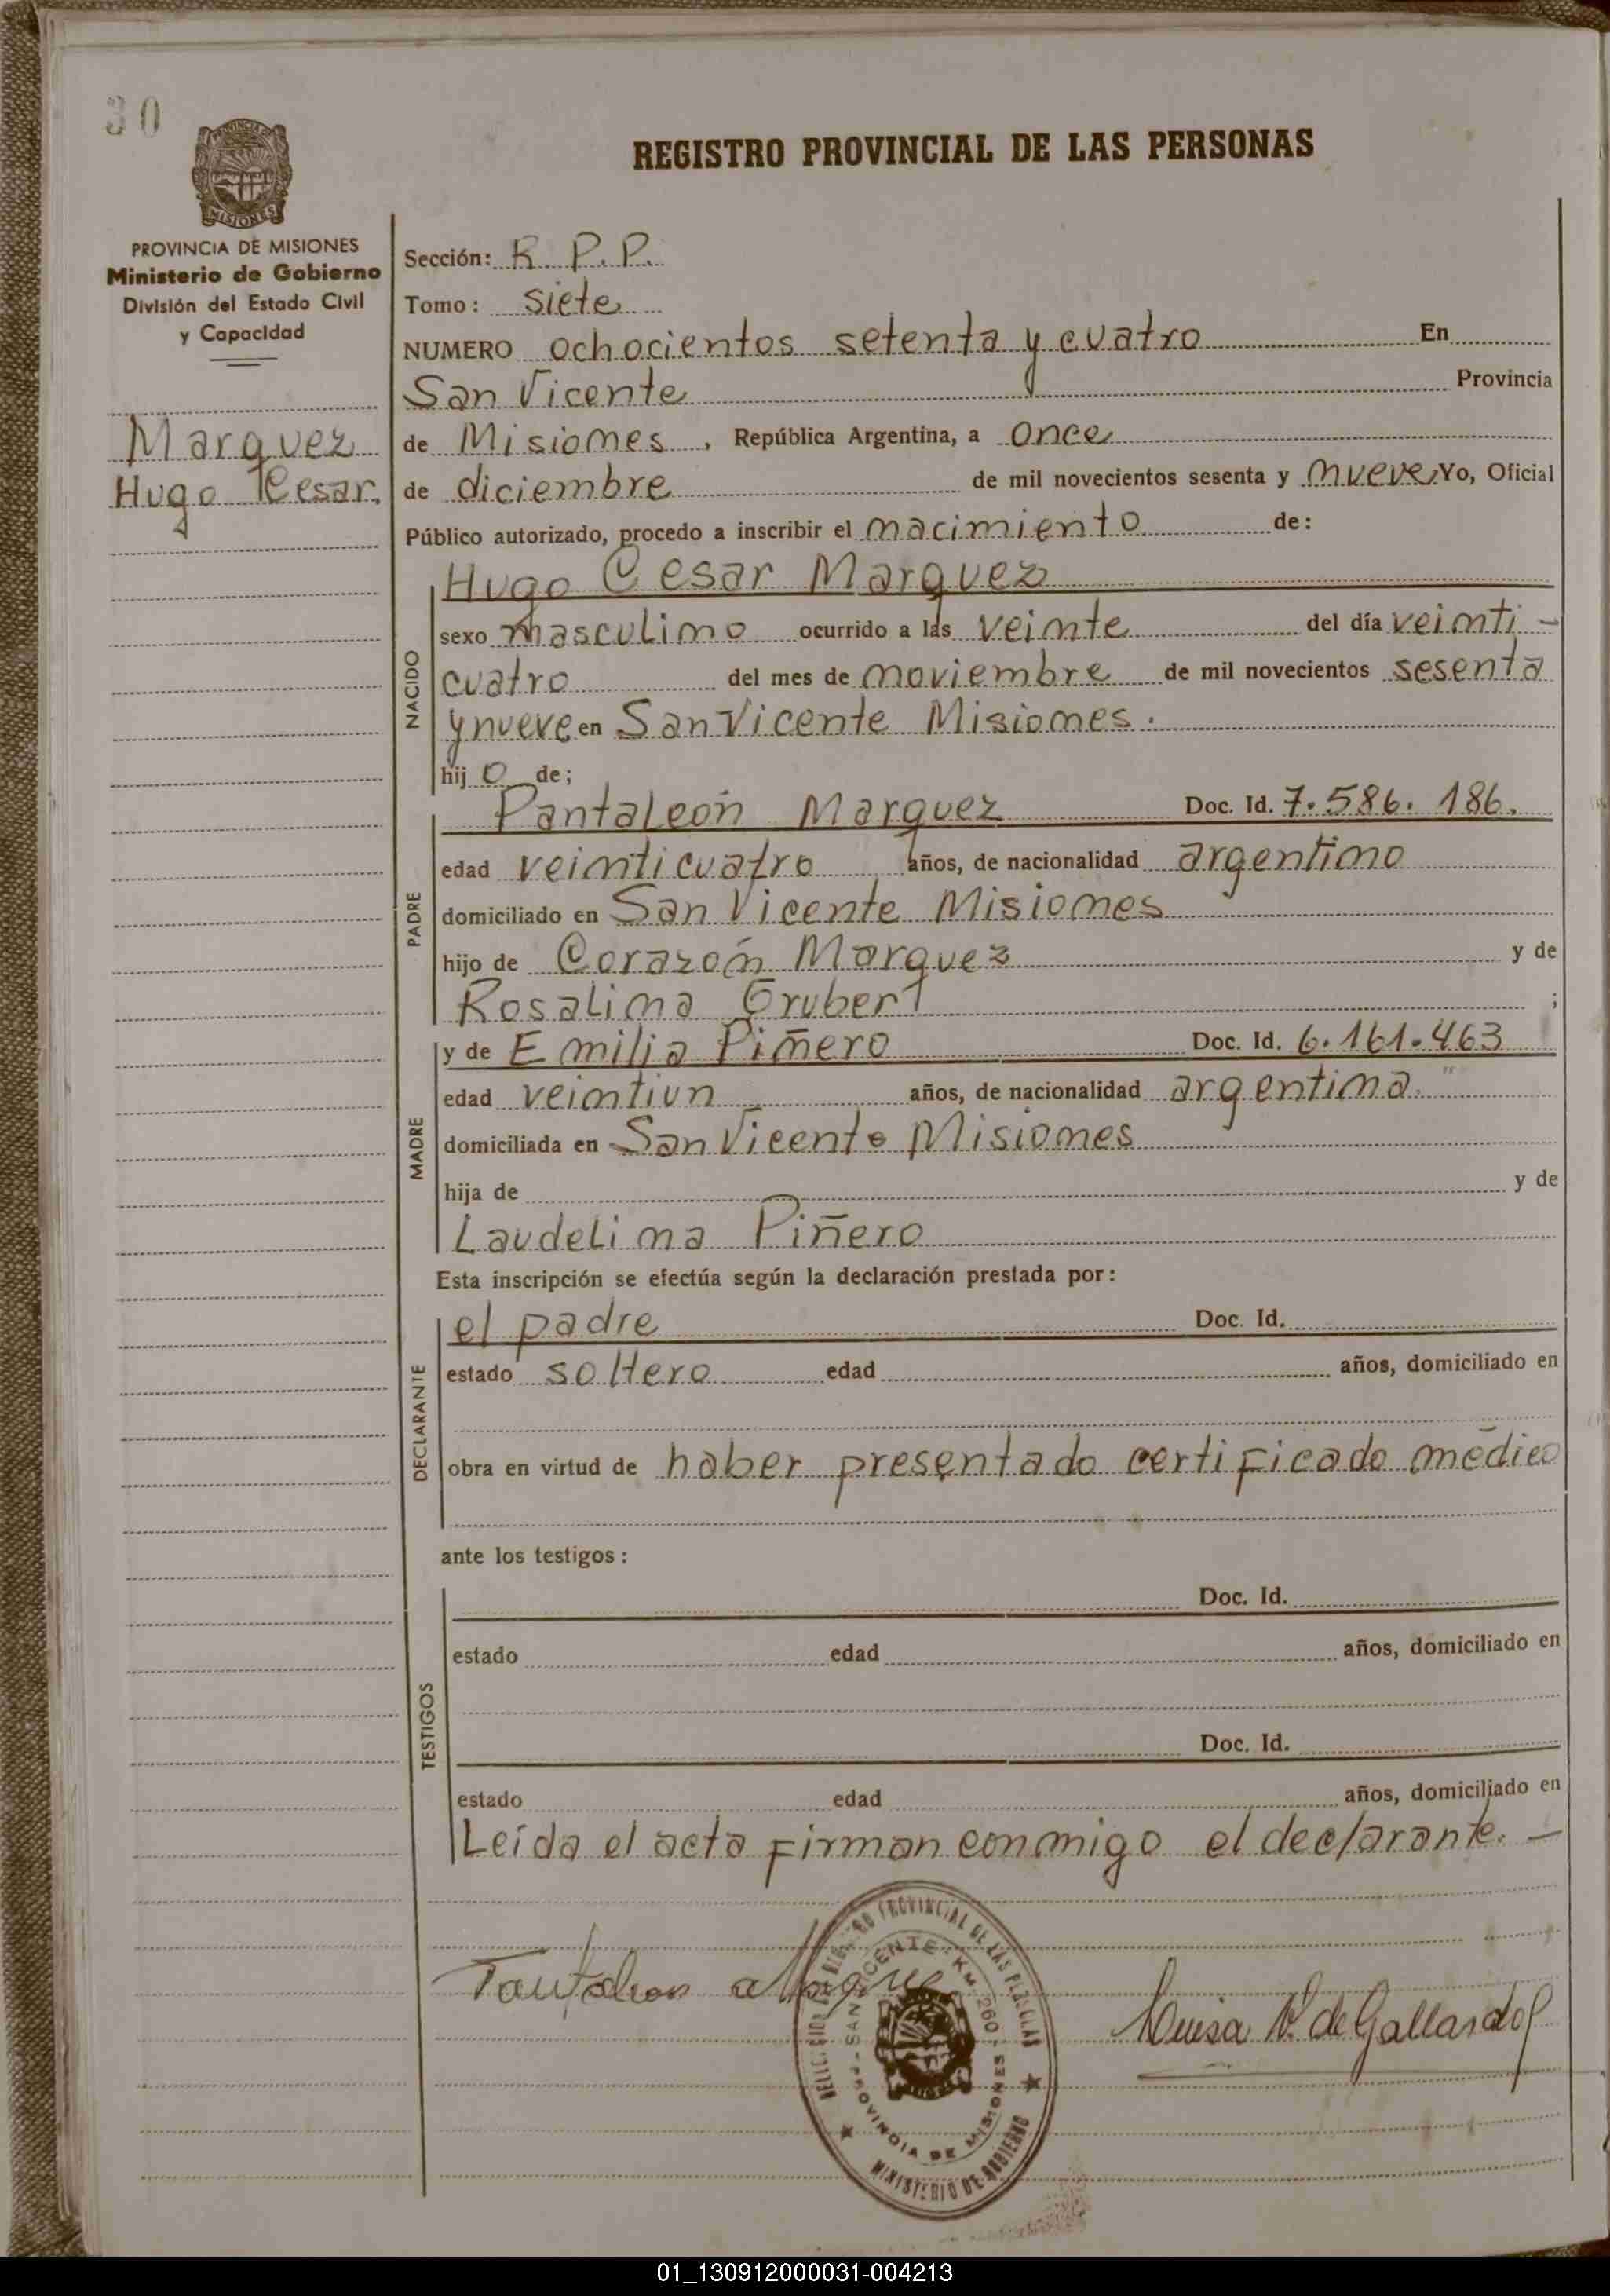 30
PROVINCIA DE MISIONES
Ministerio de Gobierno
División del Estado Civil
y Capacidad
Marquez
Hugo Cesar.
REGISTRO PROVINCIAL DE LAS PERSONAS
Sección: R. P. P.
Tomo: siete
NUMERO ochocientos setenta y cuatro En
San Vicente Provincia
de Misiones, República Argentina, a once
de diciembre de mil novecientos sesenta y nueve Yo, Oficial
Público autorizado, procedo a inscribir el nacimiento de:
NACIDO
Hugo Cesar Marquez
sexo masculino ocurrido a las veinte del día veinti-
cuatro del mes de noviembre de mil novecientos sesenta
y nueve en San Vicente Misiones.
hijo de;
PADRE
Pantaleón Marquez Doc. Id. 7.586.186.
edad veinticuatro años, de nacionalidad argentino
domiciliado en San Vicente Misiones
hijo de Corazón Marquez y de
Rosalina Grubert ;
MADRE
y de Emilia Piñero Doc. Id. 6.161.463
edad veintiun años, de nacionalidad argentina.
domiciliada en San Vicente Misiones
hija de y de
Laudelina Piñero
Esta inscripción se efectúa según la declaración prestada por:
DECLARANTE
el padre Doc. Id.
estado soltero edad años, domiciliado en
obra en virtud de haber presentado certificado médico
ante los testigos:
TESTIGOS
Doc. Id.
estado edad años, domiciliado en
Doc. Id.
estado edad años, domiciliado en
Leída el acta firman conmigo el declarante. —
Luisa V. de Gallardo
REGISTRO PROVINCIAL DE LAS
SAN VICENTE - KM 260 -
PROVINCIA DE MISIONES
MINISTERIO DE GOBIERNO
01_130912000031-004213